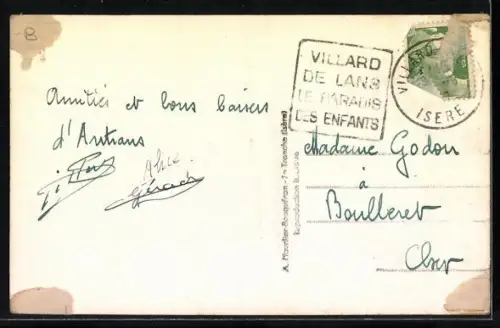 B
Amitiés et bons baisers
d'Autrans
Alice
Gérard
VILLARD
DE LANS
LE PARADIS
DES ENFANTS
VILLARD
ISERE
Madame Godon
à
Boulleret
Cher
A. Mourlier-Bouquéron - La Tronche (Isère)
Reproduction